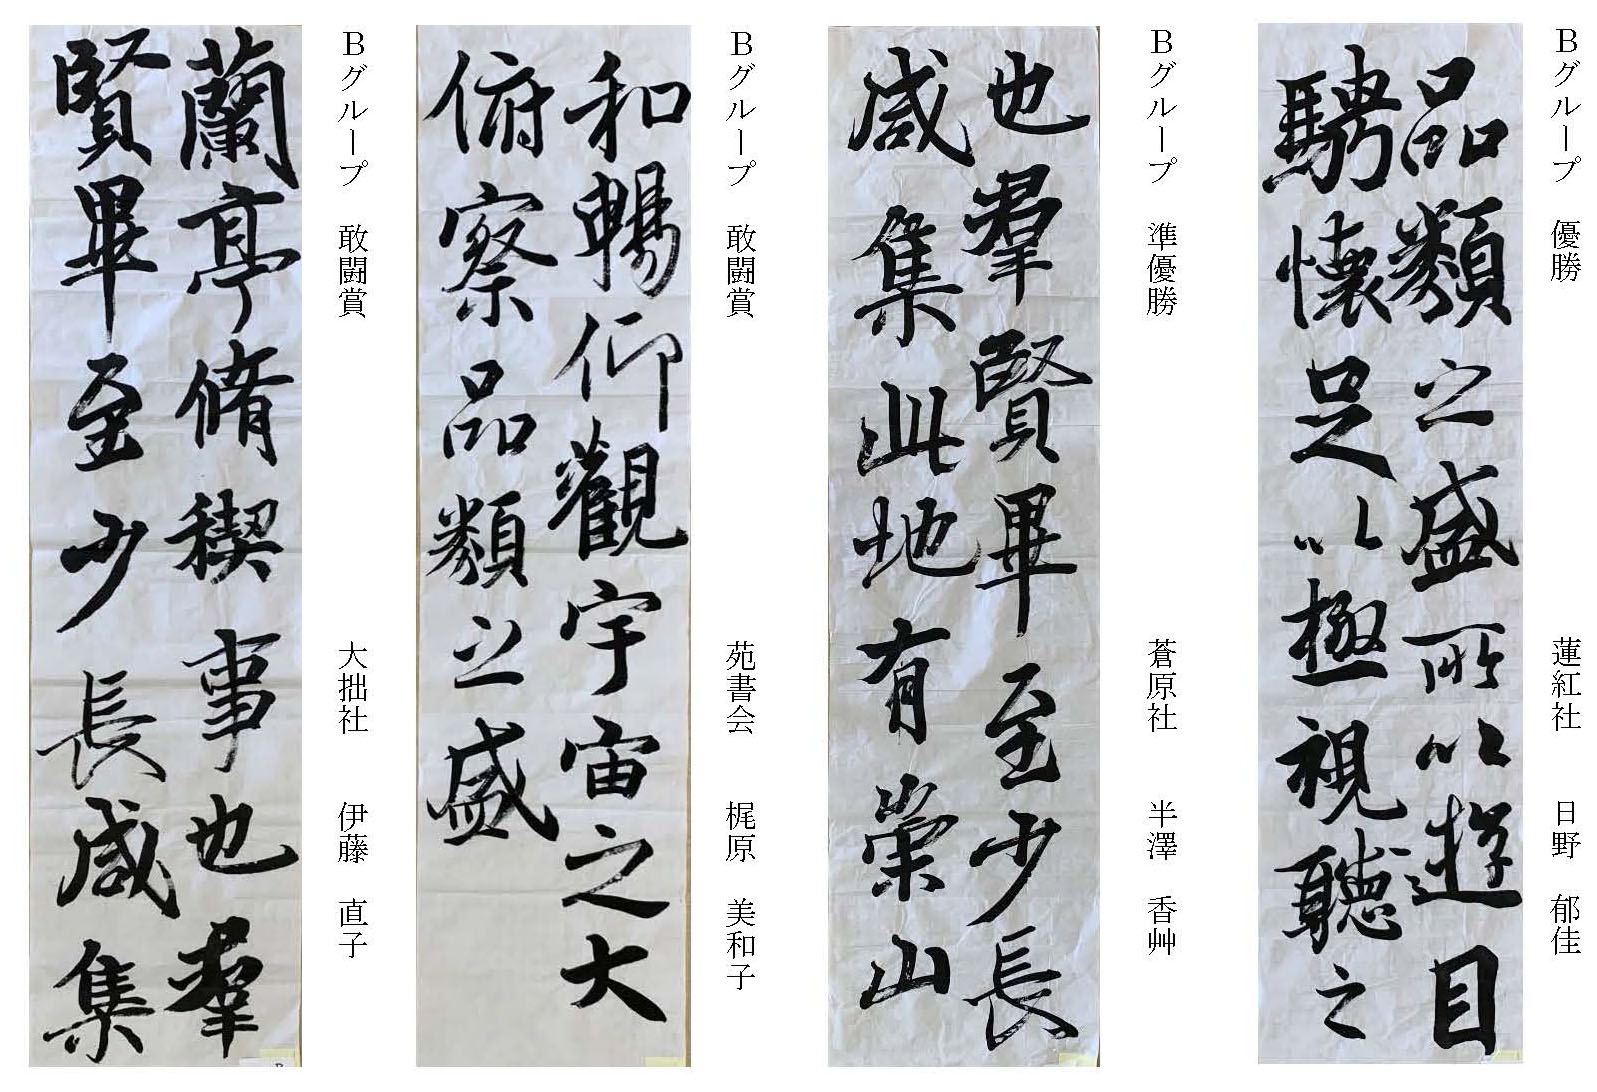 Bグループ 優勝 蓮紅社 日野 郁佳
品類之盛所以遊目
騁懷足以極視聽之
Bグループ 準優勝 蒼原社 半澤 香艸
也羣賢畢至少長
咸集此地有崇山
Bグループ 敢闘賞 苑書会 梶原 美和子
和暢仰觀宇宙之大
俯察品類之盛
Bグループ 敢闘賞 大拙社 伊藤 直子
蘭亭脩禊事也羣
賢畢至少長咸集